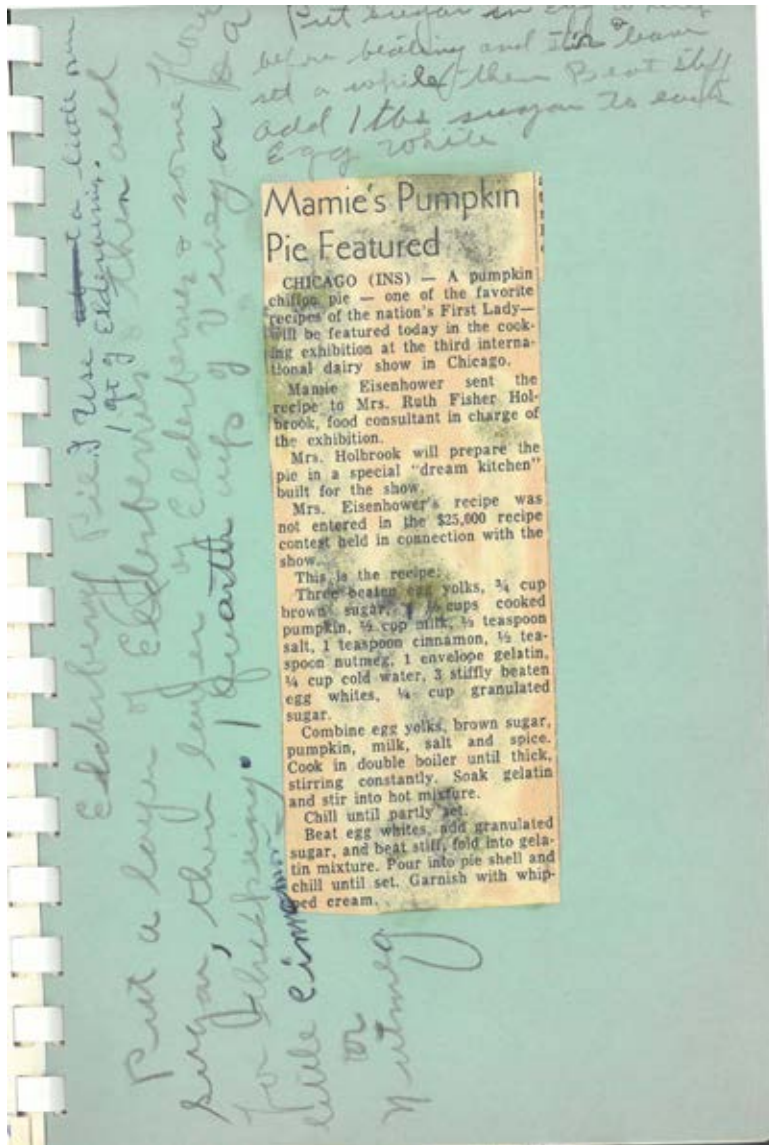 Put sugar in egg whites
before beating and stir & leave
set a while then Beat stiff
add 1 tbs sugar to each
Egg white
Mamie's Pumpkin
Pie Featured
CHICAGO (INS) — A pumpkin
chiffon pie — one of the favorite
recipes of the nation's First Lady—
will be featured today in the cook-
ing exhibition at the third interna-
tional dairy show in Chicago.
Mamie Eisenhower sent the
recipe to Mrs. Ruth Fisher Hol-
brook, food consultant in charge of
the exhibition.
Mrs. Holbrook will prepare the
pie in a special "dream kitchen"
built for the show.
Mrs. Eisenhower's recipe was
not entered in the $25,000 recipe
contest held in connection with the
show.
This is the recipe:
Three beaten egg yolks, ¾ cup
brown sugar, cups cooked
pumpkin, ½ cup milk, ½ teaspoon
salt, 1 teaspoon cinnamon, ½ tea-
spoon nutmeg, 1 envelope gelatin,
¼ cup cold water, 3 stiffly beaten
egg whites, ¼ cup granulated
sugar.
Combine egg yolks, brown sugar,
pumpkin, milk, salt and spice.
Cook in double boiler until thick,
stirring constantly. Soak gelatin
and stir into hot mixture.
Chill until partly set.
Beat egg whites, add granulated
sugar, and beat stiff, fold into gela-
tin mixture. Pour into pie shell and
chill until set. Garnish with whip-
ped cream.
Elderberry Pie. I use a little over
1 qt of Elderberries.
Put a layer of Elderberries then add
sugar, then layer of Elderberries & some flour
for thickening. 1 quarter cup of Vinegar & a
little cinnamon
or
Nutmeg